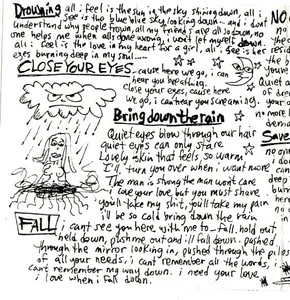 Drowning all i feel is the sun in the sky shining down, all i
see is the blue blue sky looking down - and i dont
understand why people frown, all my friends are all so down, no
one helps me when all gone wrong, i wont let myself down.
all i feel is the love in my heart for a girl, all i see is
eyes burning deep in my soul
CLOSE YOUR EYES
..cause here we go, i can
hear you breathing.
close your eyes, cause here
we go, i can hear you screaming.
Bring down the rain
Quiet eyes blow through our hair
quiet eyes can only stare
Lovely skin that feels so warm
I'll turn you over when i want more
The man is strung the man wont care
i see your love, but you must share
you'll take my shit, you'll take my pain
i'll be so cold bring down the rain
FALL
i cant see you here with me to - fall. hold out
held down, push me out and i'll fall down. pushed
through the mirror looking in, pushed through the
of all your needs, i cant remember all the words, i
cant remember my way down. i need your love
i love when i fall down.
NO
Save